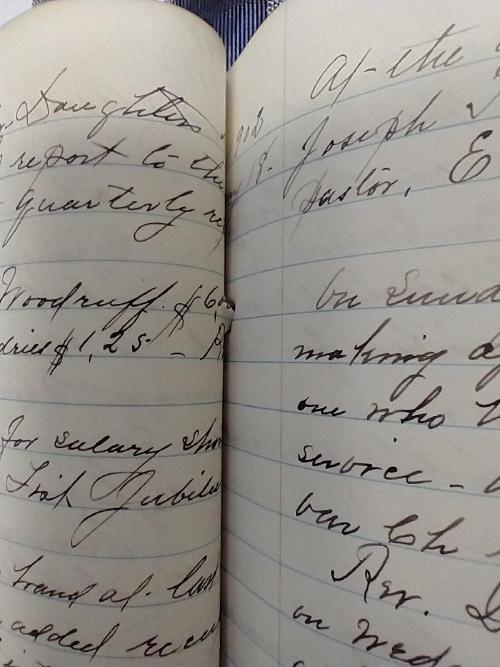 Daughters
report to the
quarterly re
Woodruff. $6,00
dries $1,25 - R
for salary sho
Fisk Jubile
hand at last
added recei
At the
Joseph
Pastor, E
On Sund
making a
one who
service -
Ch
Rev.
on Wed